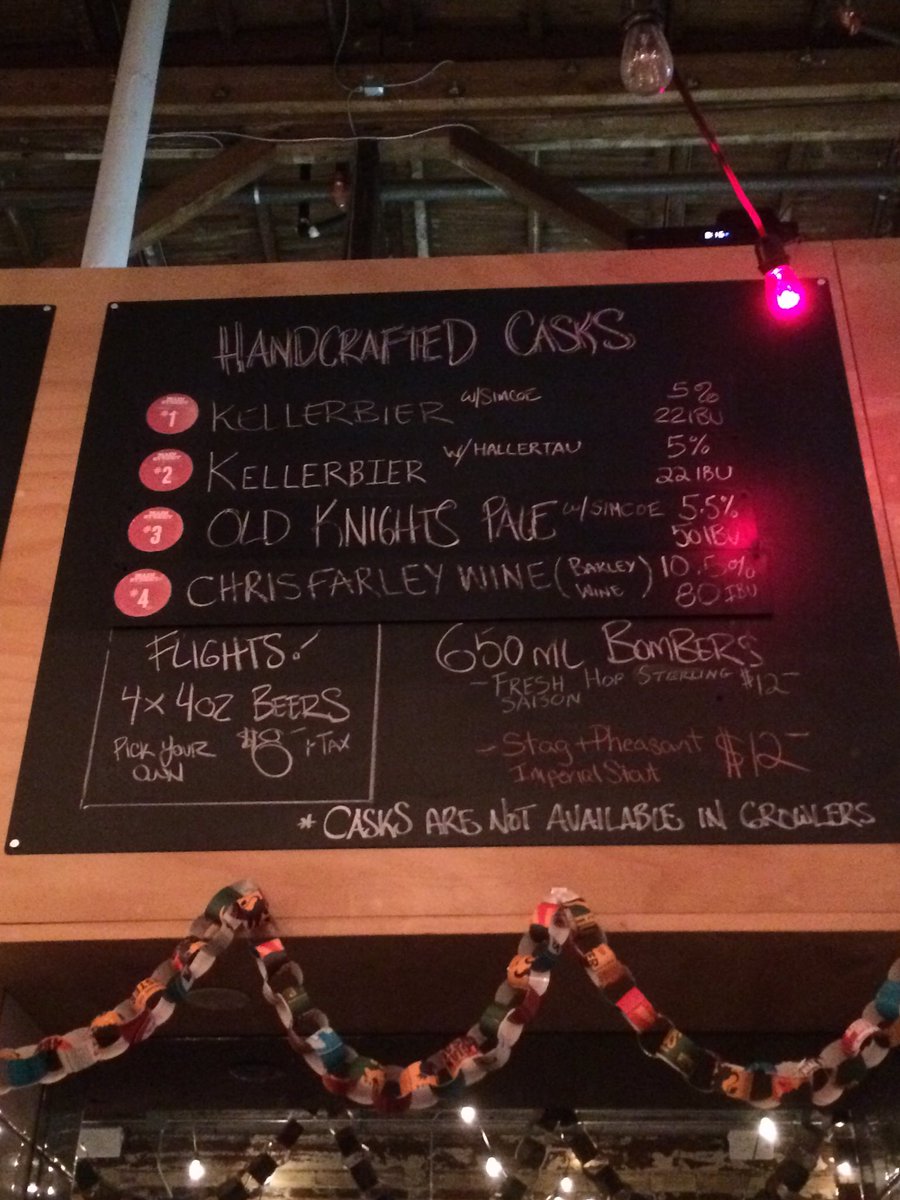 HANDCRAFTED CASKS
#1 KELLERBIER w/SIMCOE 5%
22 IBU
#2 KELLERBIER w/ HALLERTAU 5%
22 IBU
#3 OLD KNIGHTS PALE w/SIMCOE 5.5%
50 IBU
#4 CHRIS FARLEY WINE (BARLEY WINE) 10.5%
80 IBU
FLIGHTS!
4x 4oz BEERS
PICK YOUR OWN $8- + TAX
650 ML BOMBERS
- FRESH HOP STERLING $12-
SAISON
- Stag + Pheasant $12-
Imperial Stout
* CASKS ARE NOT AVAILABLE IN GROWLERS